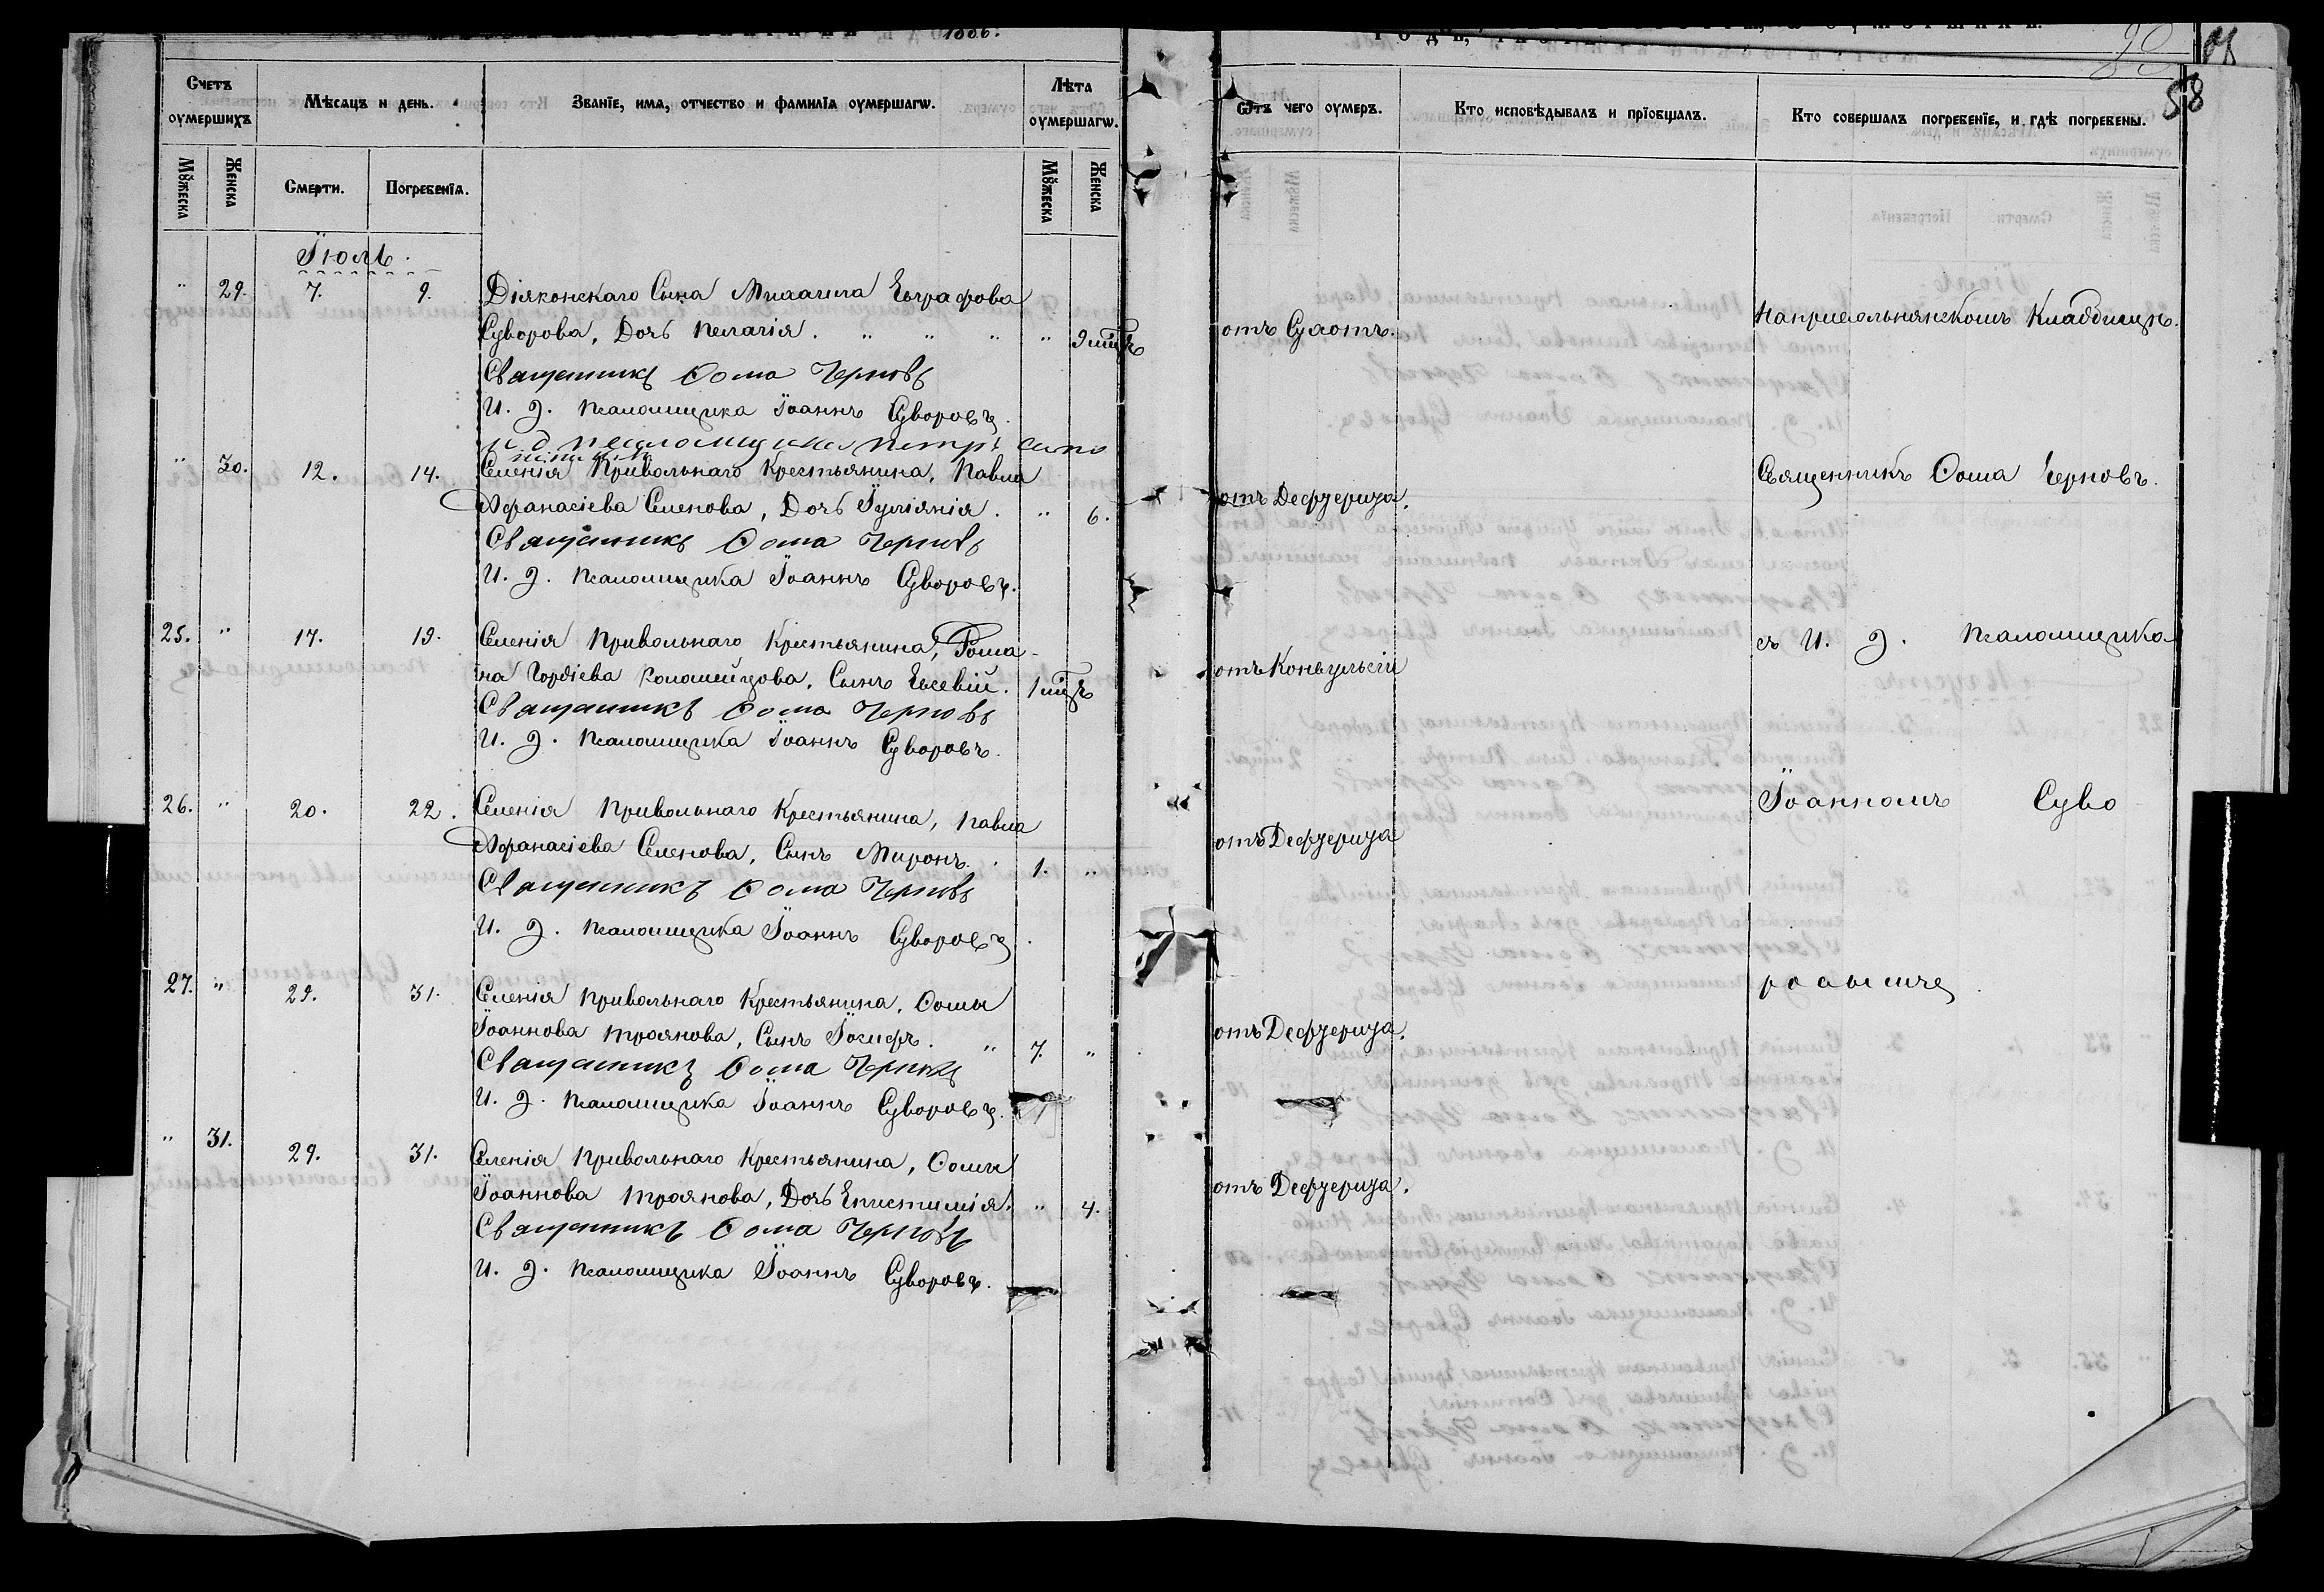 1886.
Счетъ оумершихъ
Мѣсяцъ и день.
Званїе, имя, отчество и фамилїя оумершагѡ.
Лѣта оумершагѡ.
Мꙋжеска
Женска
Смерти.
Погребенїя.
Мꙋжеска
Женска
Іюль.
" 29. 7. 9. Діяконскаго Сына Михаила Евграфова
Суворова, Дочь Пелагія. " " " " 9 мѣц.
Священникъ Ѳома Черновъ
И. д. псаломщика Іоаннъ Суворовъ.
И д псаломщика Петръ
" 30. 12. 14. Селенія Привольнаго Крестьянина, Павла
Афанасіева Семенова, Дочь Іуліянія. " 6.
Священникъ Ѳома Черновъ
И. д. псаломщика Іоаннъ Суворовъ.
25. " 17. 19. Селенія Привольнаго Крестьянина, Рома-
на Гордіева Коломейцова, Сынъ Евсевій. 1 мѣц.
Священникъ Ѳома Черновъ
И. д. псаломщика Іоаннъ Суворовъ.
26. " 20. 22. Селенія Привольнаго Крестьянина, Павла
Афанасіева Семенова, Сынъ Миронъ. 1. "
Священникъ Ѳома Черновъ
И. д. псаломщика Іоаннъ Суворовъ.
27. " 29. 31. Селенія Привольнаго Крестьянина, Ѳомы
Іоаннова Троянова, Сынъ Іосифъ. " 7. "
Священникъ Ѳома Черновъ
И. д. псаломщика Іоаннъ Суворовъ.
" 31. 29. 31. Селенія Привольнаго Крестьянина, Ѳомы
Іоаннова Троянова, Дочь Епистимія. " 4.
Священникъ Ѳома Черновъ
И. д. псаломщика Іоаннъ Суворовъ.
58
Ѿтъ чего оумеръ.
Кто исповѣдывалъ и прїобщалъ.
Кто совершалъ погребенїе, и гдѣ погребены.
отъ Сухотъ.
На приходскомъ Кладбищѣ.
отъ Дефтерита.
Священникъ Ѳома Черновъ.
отъ Коньвульсіи
съ И. д. псаломщика
отъ Дефтерита
Іоанномъ Суво
отъ Дефтерита.
ровымъ
отъ Дефтерита.